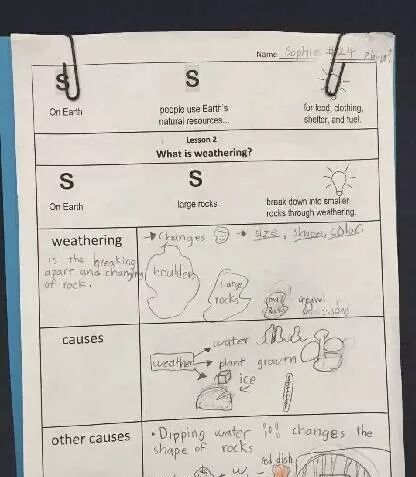 Name Sophie #24
S S
On Earth people use Earth's for food, clothing,
natural resources... shelter, and fuel.
Lesson 2
What is weathering?
S S
On Earth large rocks break down into smaller
rocks through weathering.
weathering → Changes → size, shape, color.
is the breaking
apart and changing
of rock.
boulder
large
rocks
small
rocks
causes
water
weather plant growth
ice
other causes • Dipping water changes the
shape of rocks
red dish